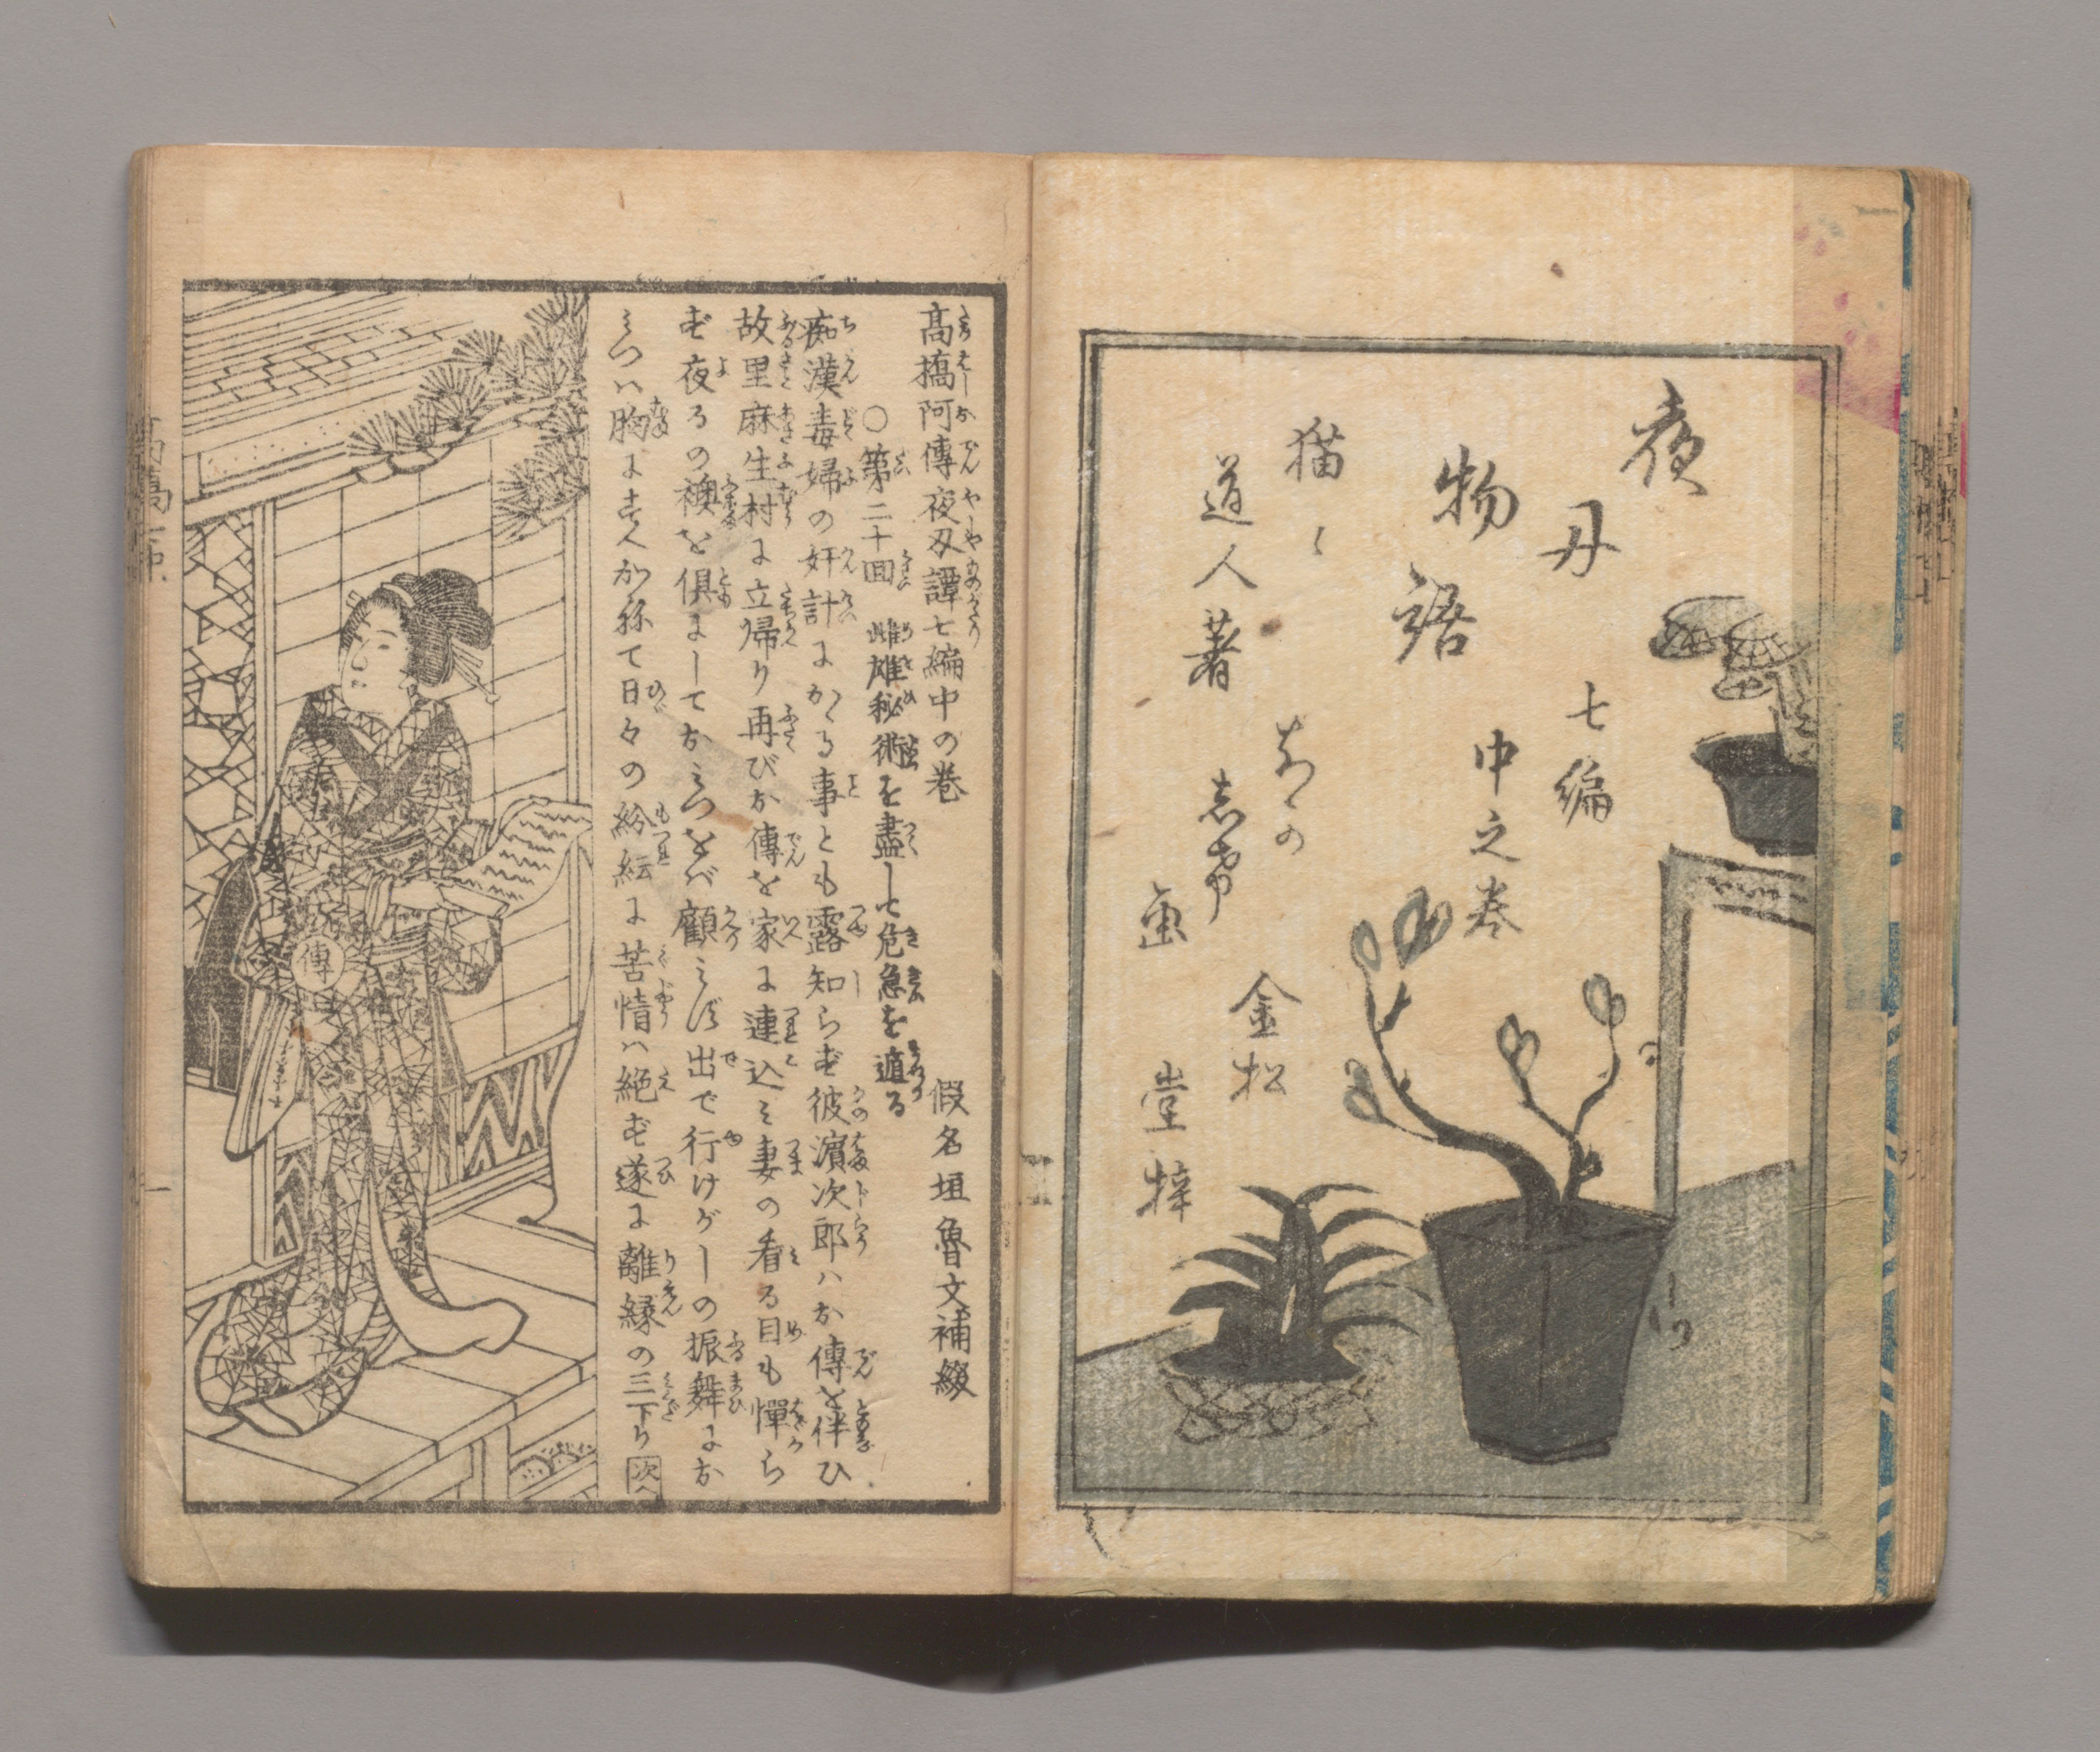 夜刄
物語
七編
中之巻
猫々
道人著
金松
堂梓
画
高橋阿傳夜刄譚七編中の巻
假名垣魯文補綴
○第二十回 雌雄秘術を盡して危急を遁る
痴漢毒婦の奸計にかゝる事とも露知らず彼濵次郎ハお傳を伴ひ
故里麻生村に立帰り再びお傳を家に連込ミ妻の看る目も憚ら
ず夜るの襖を倶にしておみつをバ顧ミず出で行けがしの振舞にお
みつハ胸にすへかねて日々の紛紜に苦情ハ絶ず遂に離縁の三下り
次へ
傳